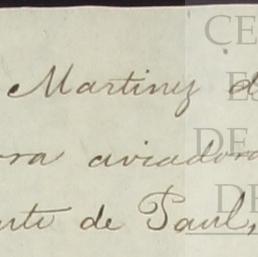 Martinez d
ora aviadora
erte de Paul,
CE
ES
DE
DE